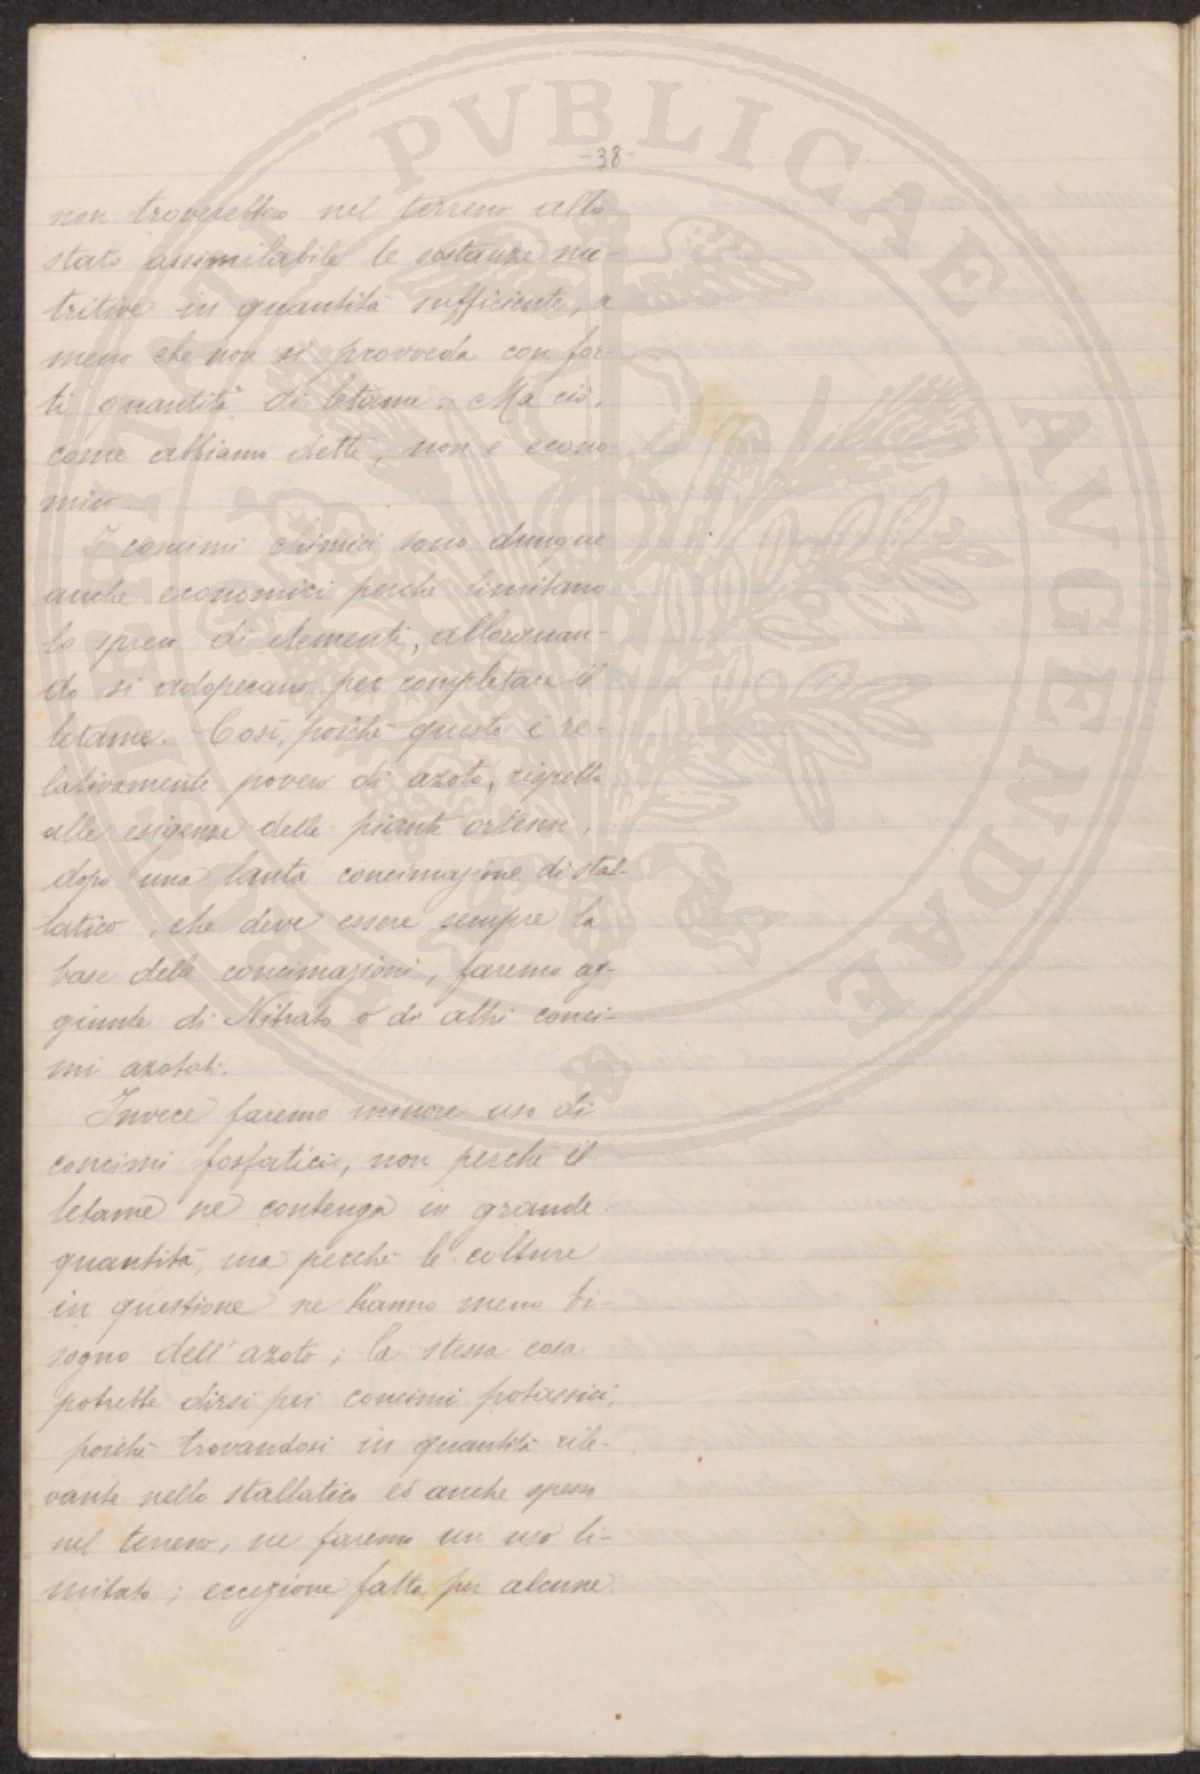 -38-
non troverebbero nel terreno allo
stato assimilabile le sostanze nu-
tritive in quantità sufficiente, a
meno che non si provveda con for-
ti quantità di letame. Ma ciò,
come abbiamo detto, non è econo-
mico.
I concimi chimici sono dunque
anche economici perchè limitano
lo spreco di elementi, allorquan-
do si adoperano per completare il
letame. Così, poichè questo è re-
lativamente povero di azoto, rispetto
alle esigenze delle piante ortensi,
dopo una lauta concimazione di stal-
latico, che deve essere sempre la
base delle concimazioni, faremo ag-
giunte di Nitrato o di altri conci-
mi azotati.
Invece faremo minore uso di
concimi fosfatici, non perchè il
letame ne contenga in grande
quantità, ma perchè le colture
in questione ne hanno meno bi-
sogno dell'azoto; la stessa cosa
potrebbe dirsi pei concimi potassici,
poichè trovandosi in quantità rile-
vante nello stallatico ed anche spesso
nel terreno, ne faremo un uso li-
mitato; eccezione fatta per alcune
PVBLICAE AVGENDAE